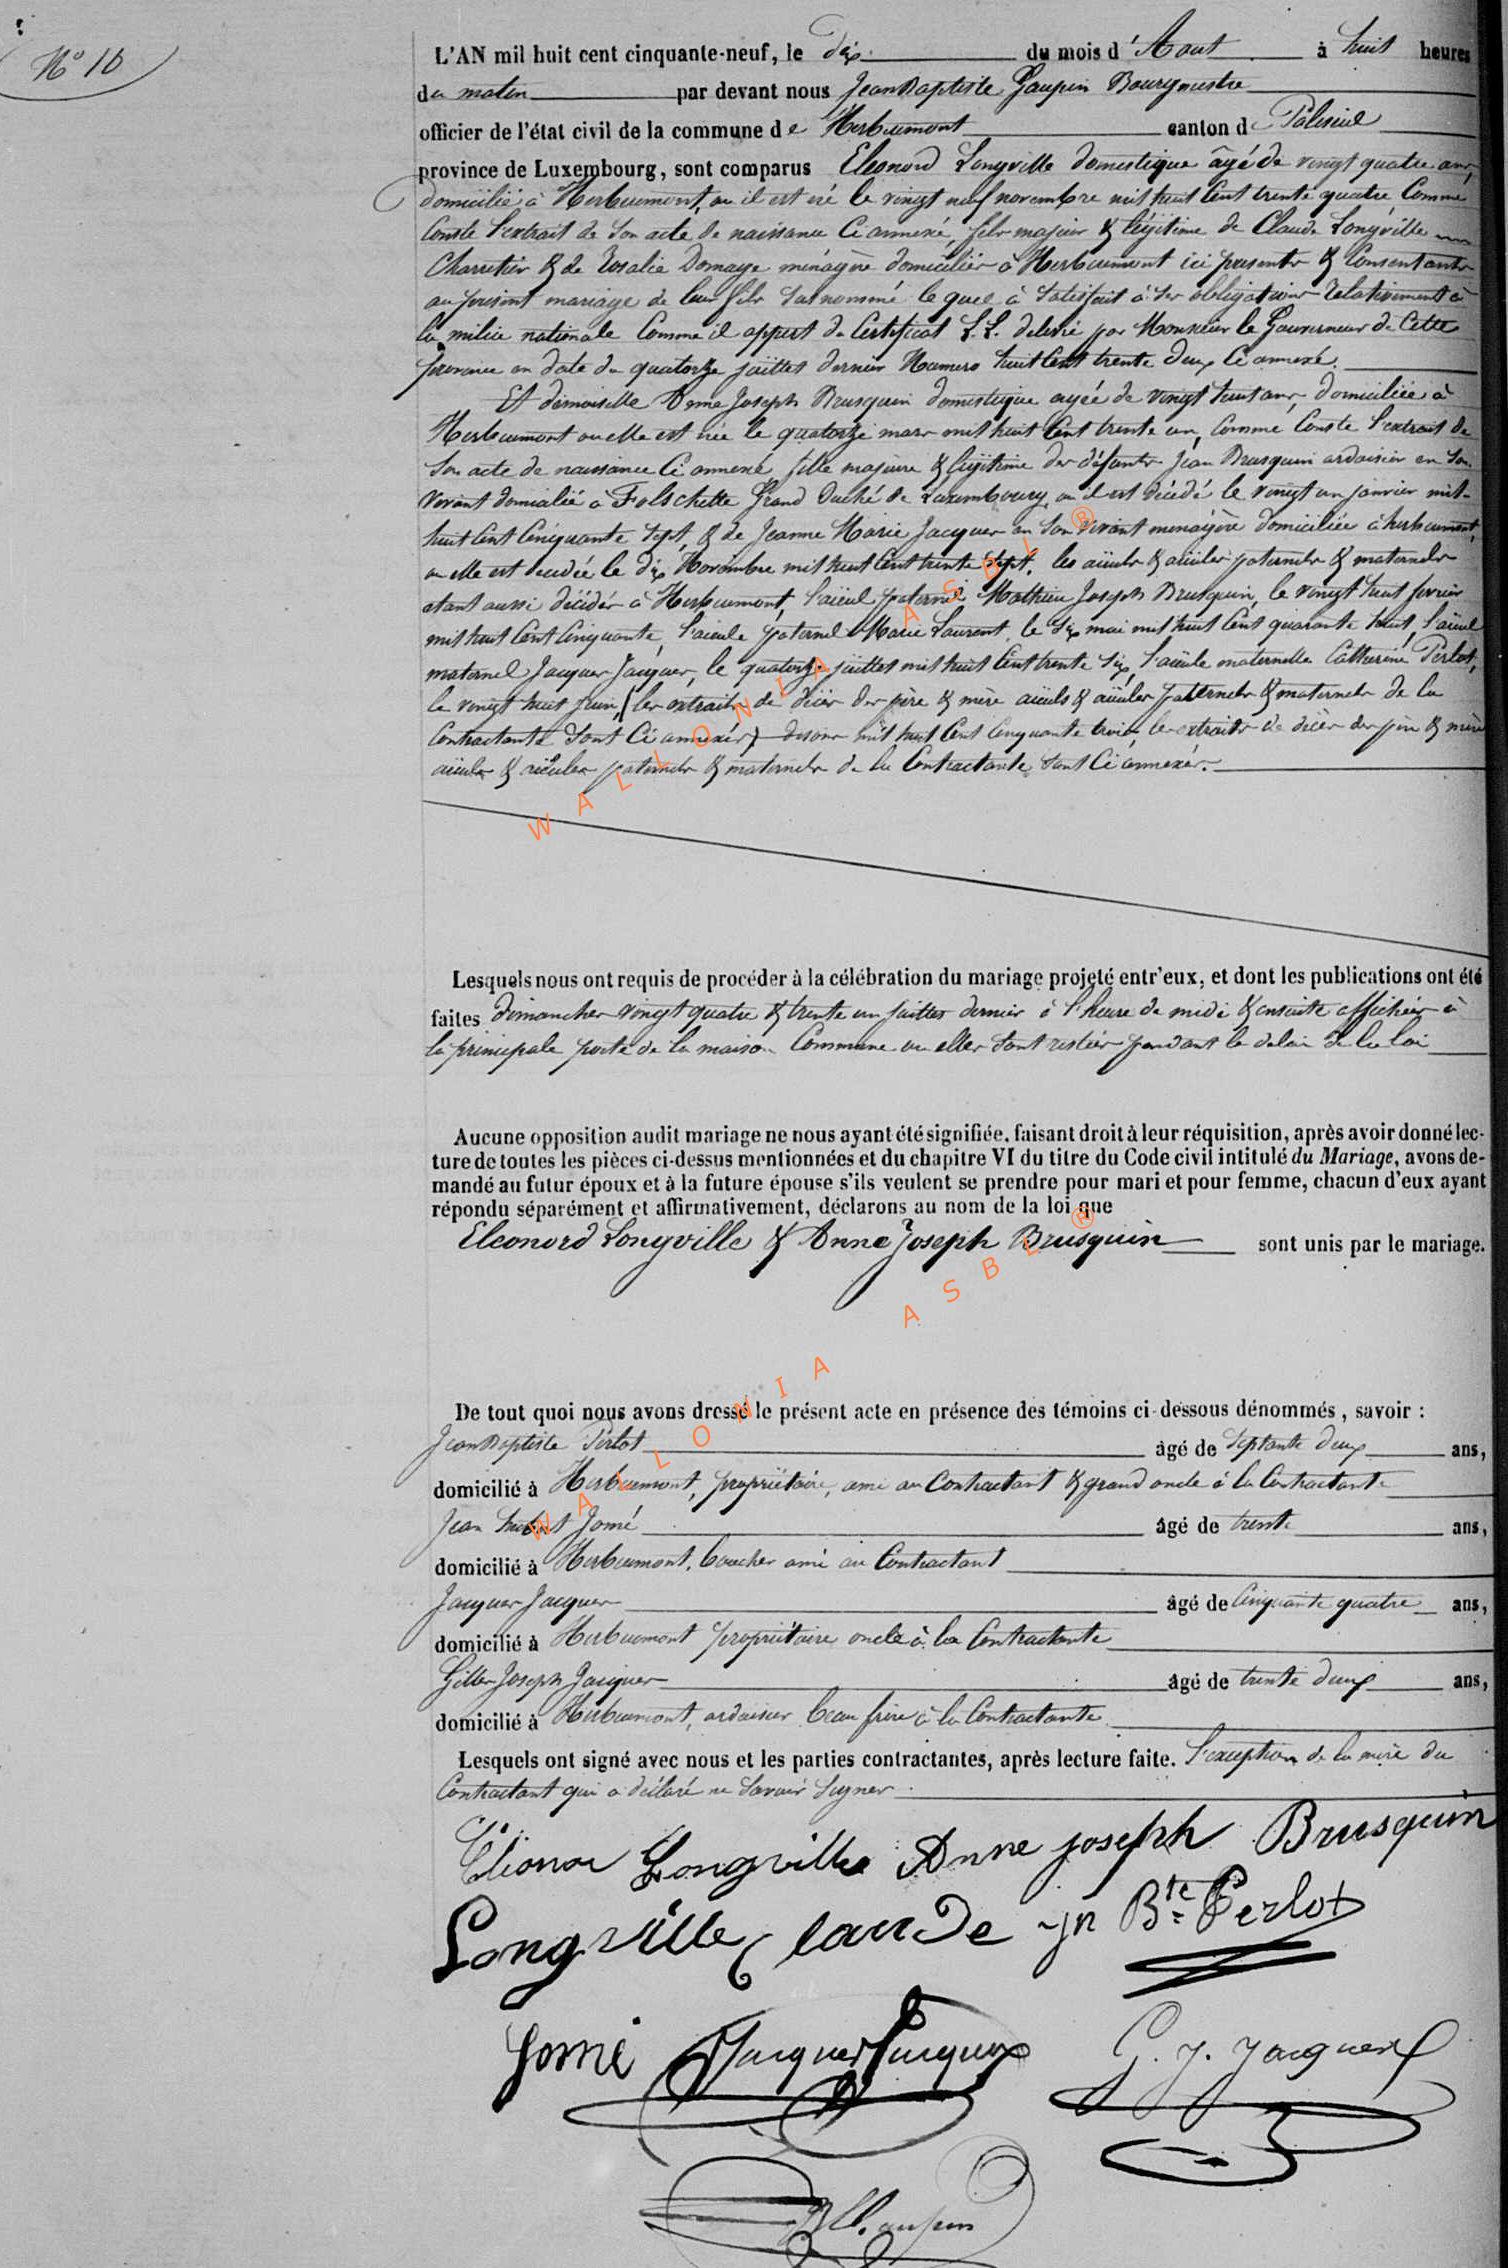 N° 10
L'AN mil huit cent cinquante-neuf, le Dix du mois d'Aout à huit heures
du matin par devant nous Jean Baptiste Gaupin Bourgmestre
officier de l'état civil de la commune de Herbeumont canton de Paliseul
province de Luxembourg, sont comparus Eléonord Longville domestique âgé de vingt quatre ans,
domicilié à Herbeumont, ou il est né le vingt neuf novembre mil huit Cent trente quatre Comme
Conste l'extrait de son acte de naissance Ci annexé, fils majeur & légitime de Claude Longville
Charretier & de Rosalie Domage ménagère domiciliés à Herbeumont ici présents & Consentants
au présent mariage de leur fils surnommé le quel à satisfait à ses obligations relativement à
la milice nationale Comme il appert du Certificat L.L. délivré par Monsieur le Gouverneur de Cette
province en date du quatorze juillet dernier Numero huit Cent trente deux Ci annexé.
Et demoiselle Anne Joseph Brusquin domestique agée de vingt huit ans, domiciliée à
Herbeumont ou elle est née le quatorze mars mil huit Cent trente un, Comme Conste l'extrait de
son acte de naissance Ci annexé, fille majeure & légitime des défunts Jean Brusquin ardoisier en son
vivant domicilié à Folschette Grand Duché de Luxembourg, ou il est décédé le vingt un janvier mil-
huit Cent Cinquante sept, & de Jeanne Marie Jacques en son vivant menagère domiciliée à herbeumont,
ou elle est decedée le dix Novembre mil huit Cent trente sept. les aïeuls & aïeules paternels & maternels
etant aussi décédés à Herbeumont, l'aïeul paternel Mathieu Joseph Brusquin, le vingt huit fevrier
mil huit Cent Cinquante, l'aieule paternel Marie Laurent, le six mai mil huit Cent quarante huit, l'aïeul
maternel Jacques Jacques, le quatorze juillet mil huit Cent trente six, l'aïeule maternelle Catherine Perlot,
le vingt huit juin, (les extraits de décès des père & mère aïeuls & aïeules paternels & maternels de la
Contractante sont Ci annexés) disons mil huit Cent Cinquante trois, les extraits de décès des père & mère
aïeuls & aïeules paternels & maternels de la Contractante sont Ci annexés.
Lesquels nous ont requis de procéder à la célébration du mariage projeté entr'eux, et dont les publications ont été
faites dimanches vingt quatre & trente un juillet dernier à l'heure de midi & ensuite affichées à
la principale porte de la maison Commune ou elles sont restées pendant le delai de la loi
Aucune opposition audit mariage ne nous ayant été signifiée, faisant droit à leur réquisition, après avoir donné lec-
ture de toutes les pièces ci-dessus mentionnées et du chapitre VI du titre du Code civil intitulé du Mariage, avons de-
mandé au futur époux et à la future épouse s'ils veulent se prendre pour mari et pour femme, chacun d'eux ayant
répondu séparément et affirmativement, déclarons au nom de la loi que
Eleonord Longville & Anne Joseph Brusquin sont unis par le mariage.
De tout quoi nous avons dressé le présent acte en présence des témoins ci-dessous dénommés, savoir :
Jean Baptiste Perlot âgé de septante deux ans,
domicilié à Herbeumont, propriétaire, ami au Contractant & grand oncle à la Contractante
Jean Jomé âgé de trente ans,
domicilié à Herbeumont, boucher ami au Contractant
Jacques Jacques âgé de Cinquante quatre ans,
domicilié à Herbeumont propriétaire oncle à la Contractante
Gilles Joseph Jacques âgé de trente deux ans,
domicilié à Herbeumont, ardoisier beau frère à la Contractante
Lesquels ont signé avec nous et les parties contractantes, après lecture faite. l'exception de la mère du
Contractant qui a déclaré ne savoir signer.
Elionor Longville Anne joseph Brusquin
Longville Claude jn Bte Perlot
Jomé Jacques Jacques G. J. Jacques
Gaupin
WALLONIA ASBL ®
WALLONIA ASBL ®